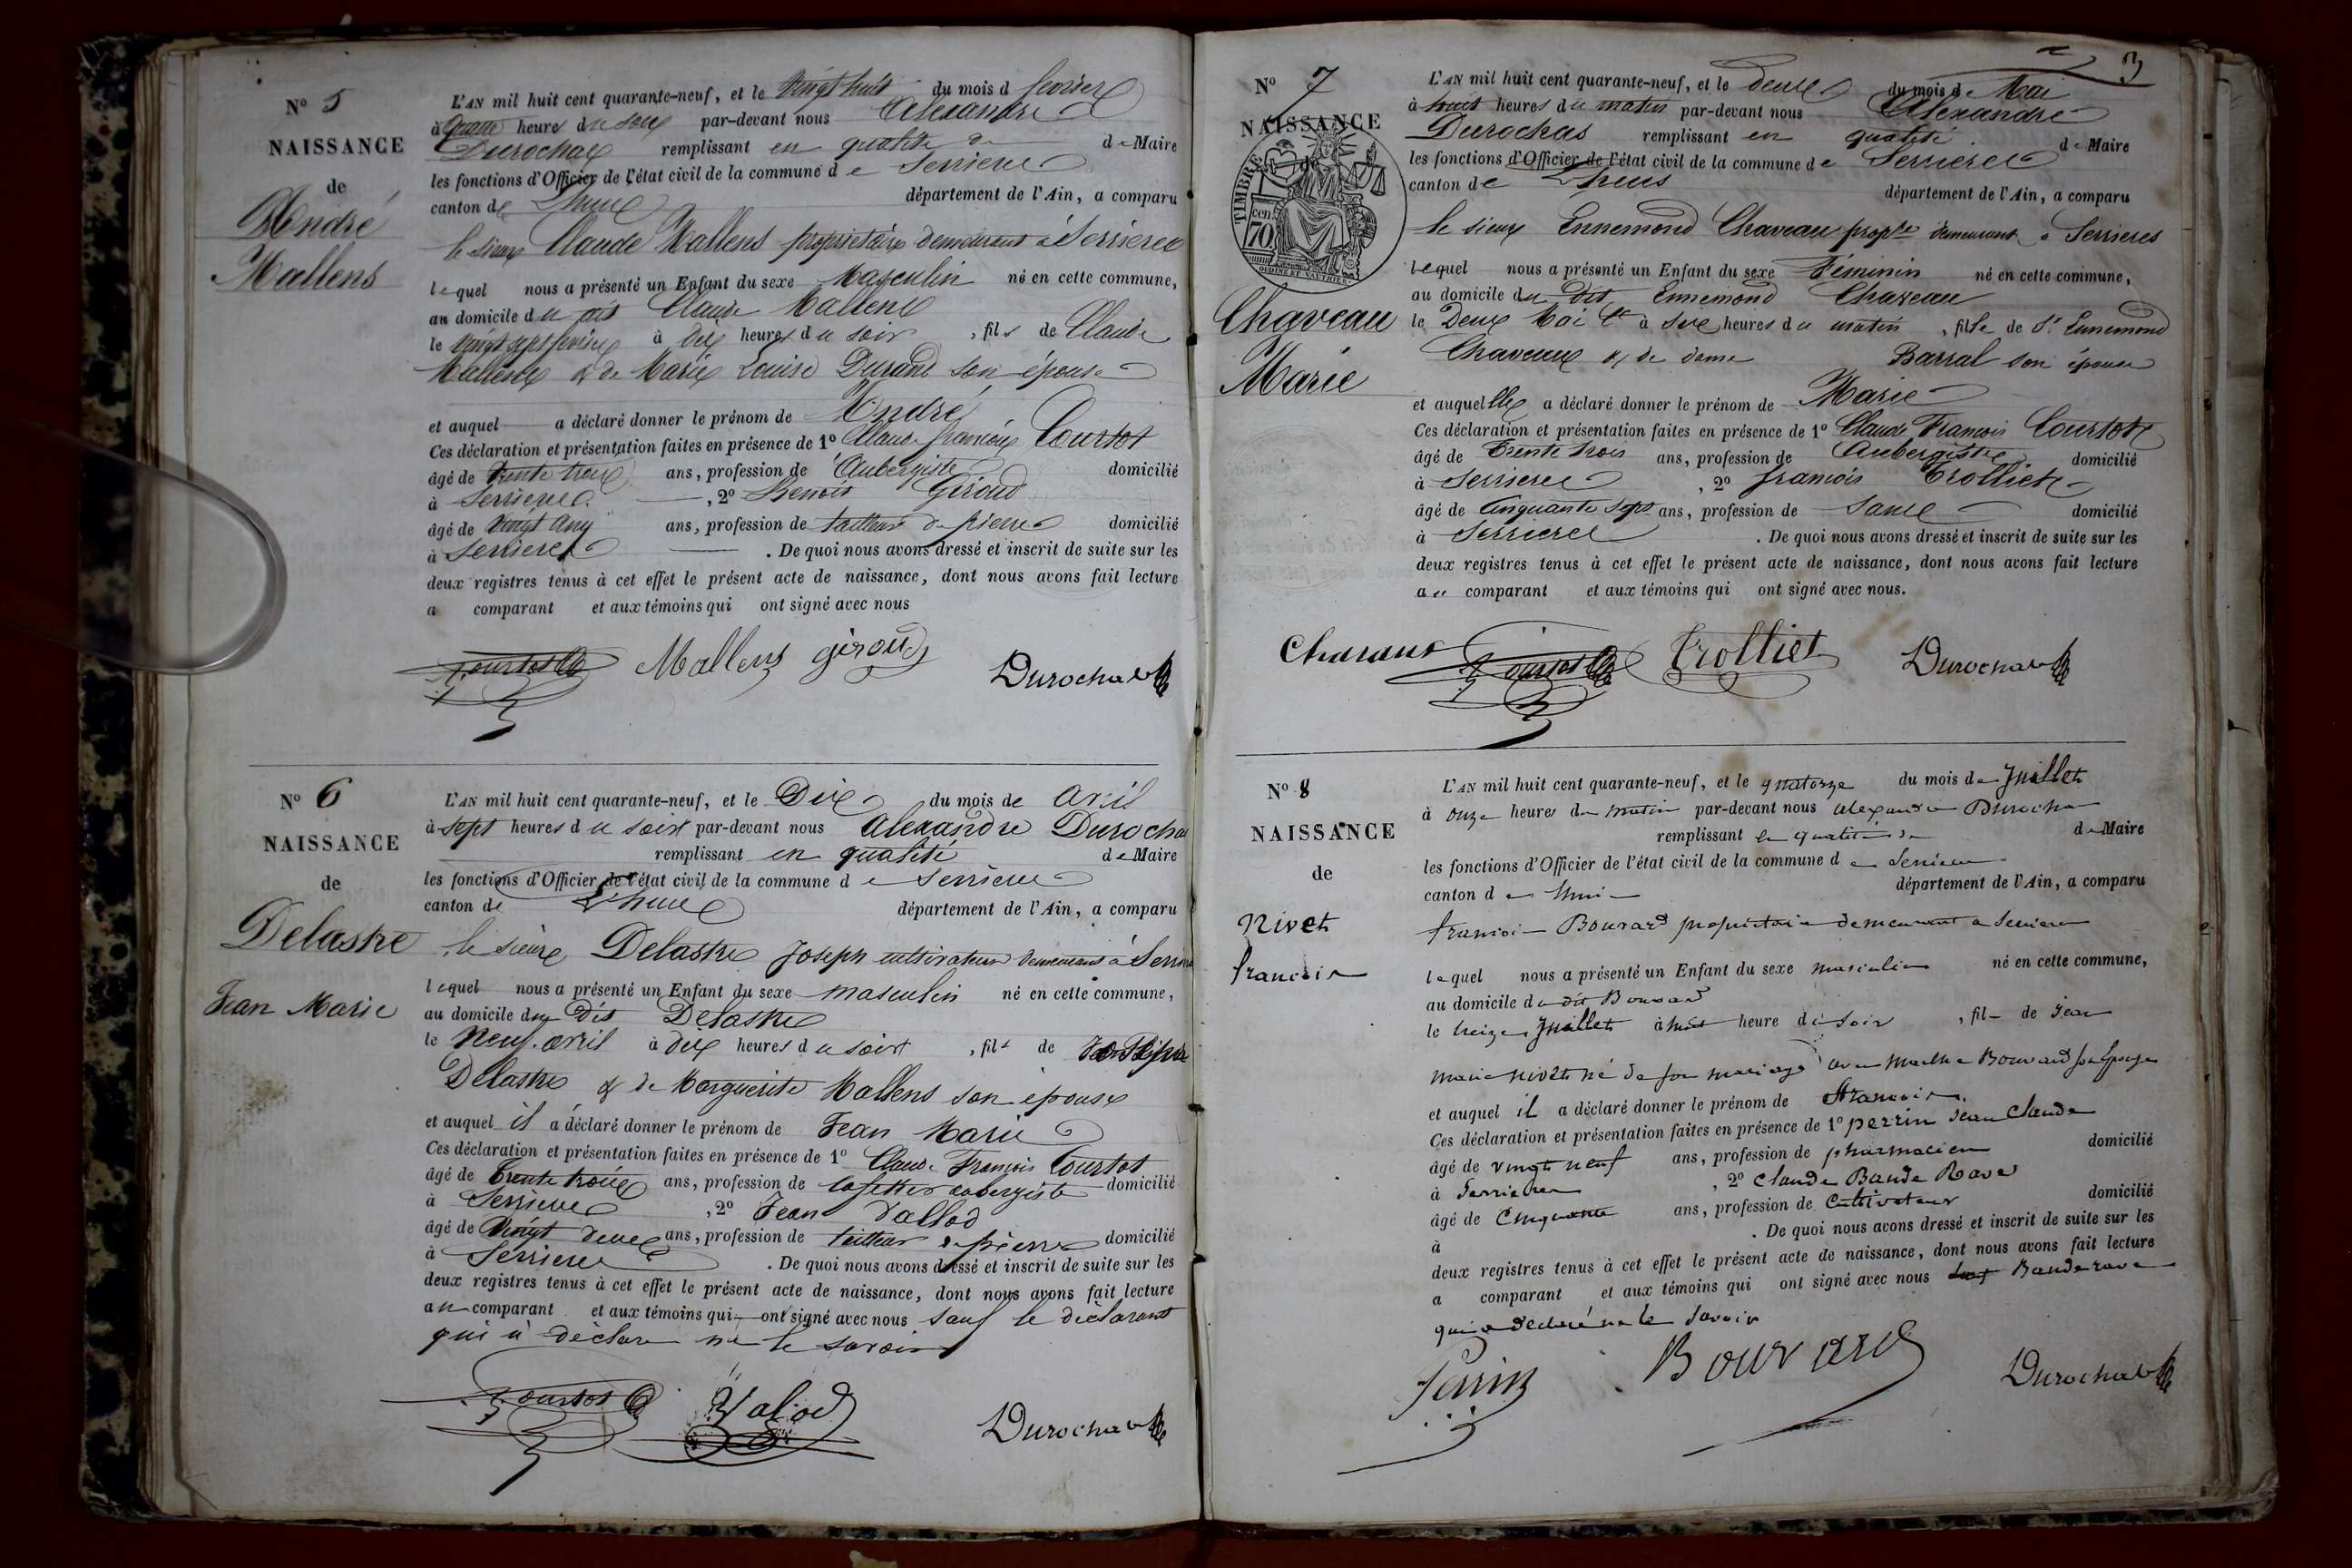 N° 5
NAISSANCE
de
André
Mallens
L'AN mil huit cent quarante-neuf, et le vingt huit du mois d fevrier
à quatre heures du soir par-devant nous Alexandre
Durochat remplissant en qualité de de Maire
les fonctions d'Officier de l'état civil de la commune de Serrieres
canton de Lhuis département de l'Ain, a comparu
le sieur Claude Mallens propriétaire demeurant à Serrieres
lequel nous a présenté un Enfant du sexe Masculin né en cette commune,
au domicile du dit Claude Mallens
le vingt sept fevrier à dix heures du soir, fils de Claude
Mallens & de Marie Louise Durand son épouse
et auquel a déclaré donner le prénom de André
Ces déclaration et présentation faites en présence de 1° Claude francois Courtot
âgé de trente trois ans, profession de Aubergiste domicilié
à Serrieres, 2° Benoit Giroud
âgé de vingt ans, profession de tailleur de pierre domicilié
à Serrieres. De quoi nous avons dressé et inscrit de suite sur les
deux registres tenus à cet effet le présent acte de naissance, dont nous avons fait lecture
a comparant et aux témoins qui ont signé avec nous
Courtot Mallens giroud Durochat
N° 6
NAISSANCE
de
Delastre
Jean Marie
L'AN mil huit cent quarante-neuf, et le Dix du mois de avril
à sept heures du soir par-devant nous Alexandre Durochat
remplissant en qualité de Maire
les fonctions d'Officier de l'état civil de la commune de Serrieres
canton de Lhuis département de l'Ain, a comparu
le sieur Delastre Joseph cultivateur demeurant à Serrieres
lequel nous a présenté un Enfant du sexe masculin né en cette commune,
au domicile du dit Delastre
le neuf avril à dix heures du soir, fils de Joseph
Delastre & de Marguerite Mallens son épouse
et auquel il a déclaré donner le prénom de Jean Marie
Ces déclaration et présentation faites en présence de 1° Claude François Courtot
âgé de trente trois ans, profession de cafetier aubergiste domicilié
à Serrieres, 2° Jean Vallod
âgé de vingt deux ans, profession de tailleur de pierre domicilié
à Serrieres. De quoi nous avons dressé et inscrit de suite sur les
deux registres tenus à cet effet le présent acte de naissance, dont nous avons fait lecture
au comparant et aux témoins qui ont signé avec nous sauf le déclarant
qui a déclaré ne le savoir
Courtot Valod Durochat
3
N° 7
NAISSANCE
de
TIMBRE
cen.
70
OUDINÉ ET VAUTHIER
Chaveau
Marie
L'AN mil huit cent quarante-neuf, et le deux du mois de Mai
à huit heures du matin par-devant nous Alexandre
Durochas remplissant en qualité de Maire
les fonctions d'Officier de l'état civil de la commune de Serrieres
canton de Lhuis département de l'Ain, a comparu
le sieur Ennemond Chaveau propre demeurant à Serrieres
lequel nous a présenté un Enfant du sexe Féminin né en cette commune,
au domicile du dit Ennemond Chaveau
le Deux Mai à six heures du matin, fille de Sr Ennemond
Chaveau & de dame Barral son épouse
et auquelle a déclaré donner le prénom de Marie
Ces déclaration et présentation faites en présence de 1° Claude François Courtot
âgé de Trente trois ans, profession de Aubergiste domicilié
à Serrieres, 2° francois Trolliet
âgé de Cinquante sept ans, profession de domicilié
à Serrieres. De quoi nous avons dressé et inscrit de suite sur les
deux registres tenus à cet effet le présent acte de naissance, dont nous avons fait lecture
au comparant et aux témoins qui ont signé avec nous.
Courtot Trolliet Durochat
N° 8
NAISSANCE
de
Nivet
francois
L'AN mil huit cent quarante-neuf, et le quatorze du mois de Juillet
à onze heures du matin par-devant nous alexandre Durochat
remplissant en qualité de de Maire
les fonctions d'Officier de l'état civil de la commune de Serrieres
canton de Lhuis département de l'Ain, a comparu
francois Bouvard propriétaire demeurant a Serrieres
lequel nous a présenté un Enfant du sexe masculin né en cette commune,
au domicile du dit Bouvard
le treize Juillet à huit heure du soir, fils de Jean
marie nivet né de son mariage avec marthe Bouvard son épouse
et auquel il a déclaré donner le prénom de francois
Ces déclaration et présentation faites en présence de 1° perrin Jean Claude
âgé de vingt neuf ans, profession de pharmacien domicilié
à Serrieres, 2° Claude Bande Rave
âgé de Cinquante ans, profession de Cultivateur domicilié
à. De quoi nous avons dressé et inscrit de suite sur les
deux registres tenus à cet effet le présent acte de naissance, dont nous avons fait lecture
a comparant et aux témoins qui ont signé avec nous sauf Banderave
qui a déclaré ne le savoir
Perrin Bouvard Durochat